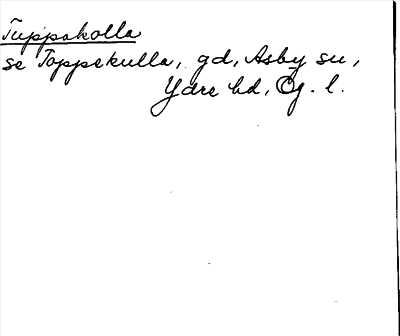 Tuppakolla
se Toppekulla, gd, Asby sn,
Ydre hd, Ög. l.